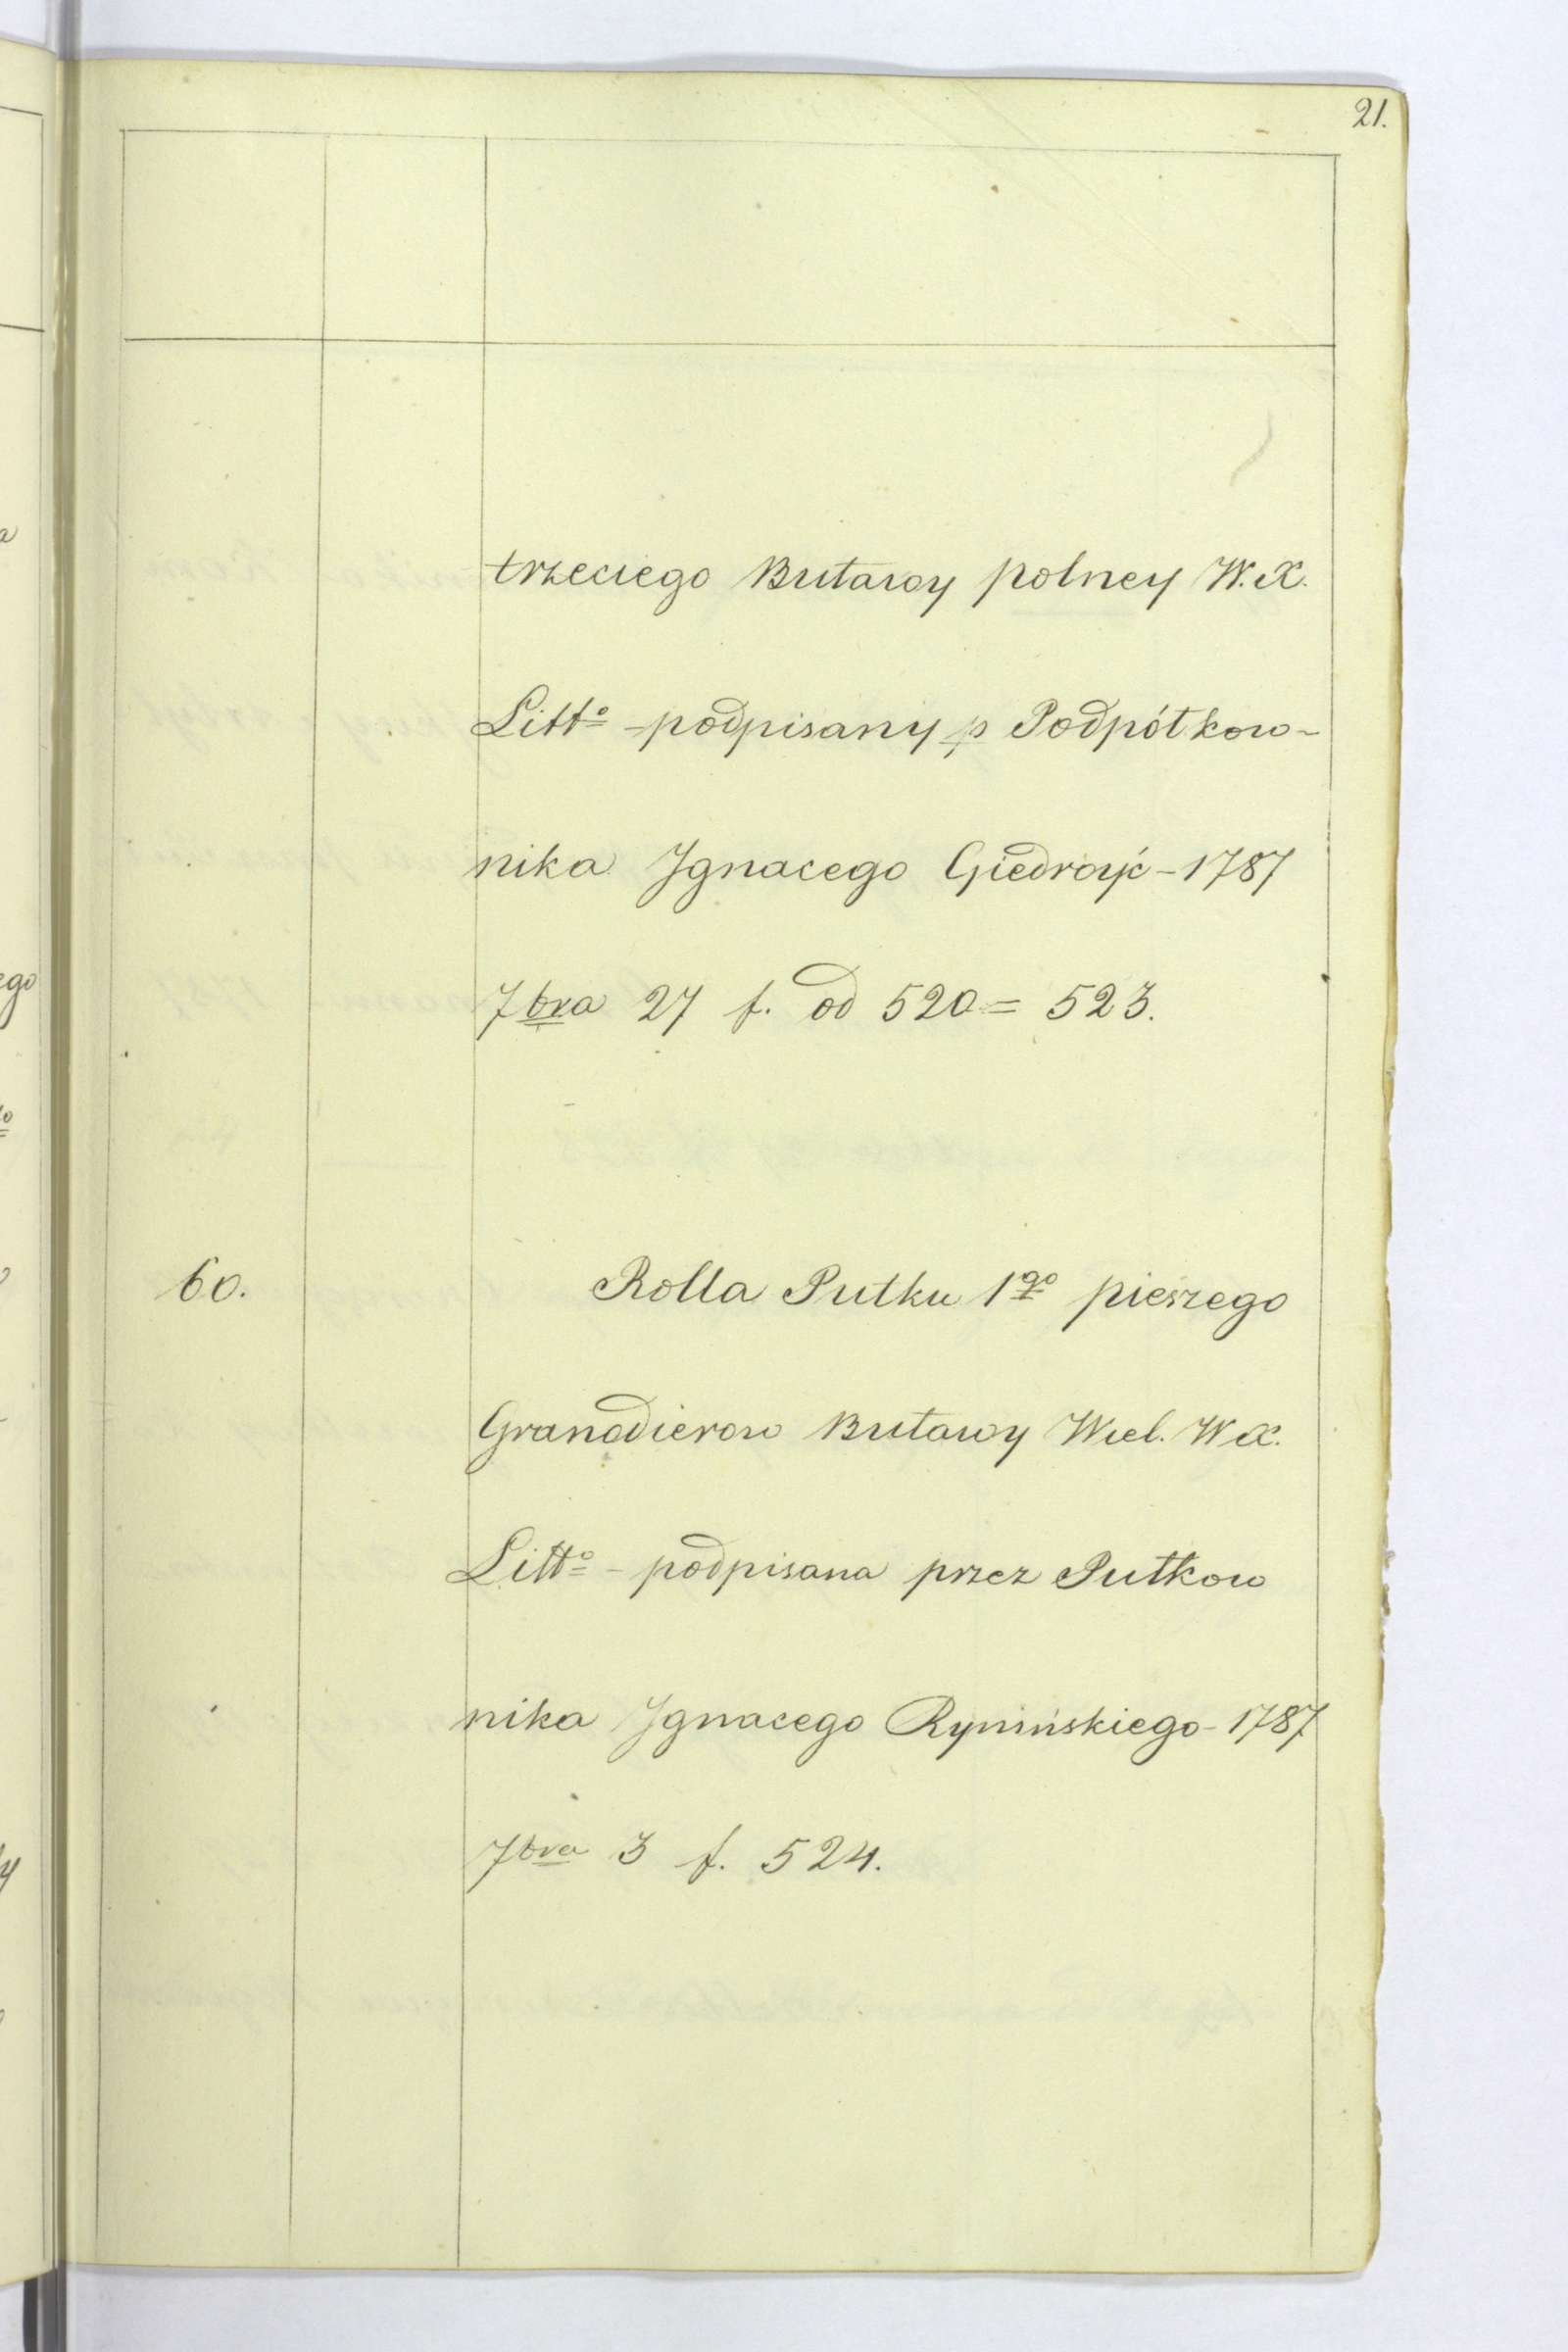 21.
trzeciego Butawy polney W. X.
Litto - podpisany p Podpółkow-
nika Ignacego Giedroyć - 1787
7bra 27 f. od 520 = 523.
60. Rolla Pułku 1go pieszego
Granadierow Buławy Wiel. W X.
Litto - podpisana przez Pułkow
nika Ignacego Rynińskiego - 1787
7bra 3 f. 524.